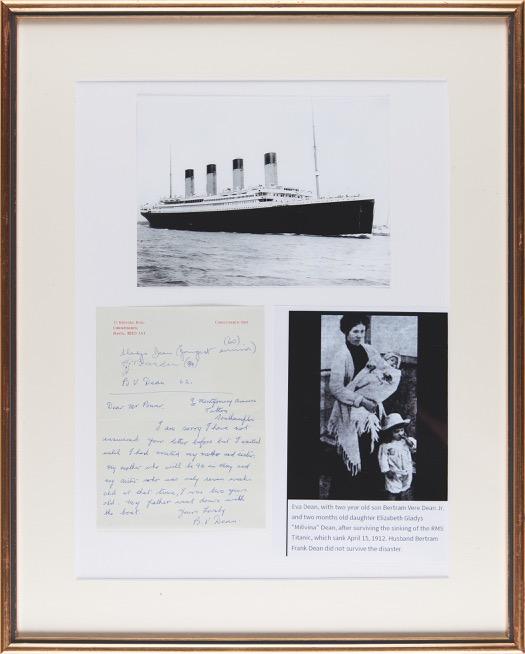 CHRISTCHURCH
B V Dean 62.
Dear Mr
Montgomery Avenue
Totton
Southampton
I am sorry I have not
answered your letter before but I waited
until I had my mother and sister.
My mother who will be 94 in May and
my sister who was only seven weeks
old at that time, I was two years
old. My father went down with
the boat. Yours Truly
B. V Dean.
Eva Dean, with two year old son Bertram Vere Dean Jr.
and two months old daughter Elizabeth Gladys
"Millvina" Dean, after surviving the sinking of the RMS
Titanic, which sank April 15, 1912. Husband Bertram
Frank Dean did not survive the disaster.